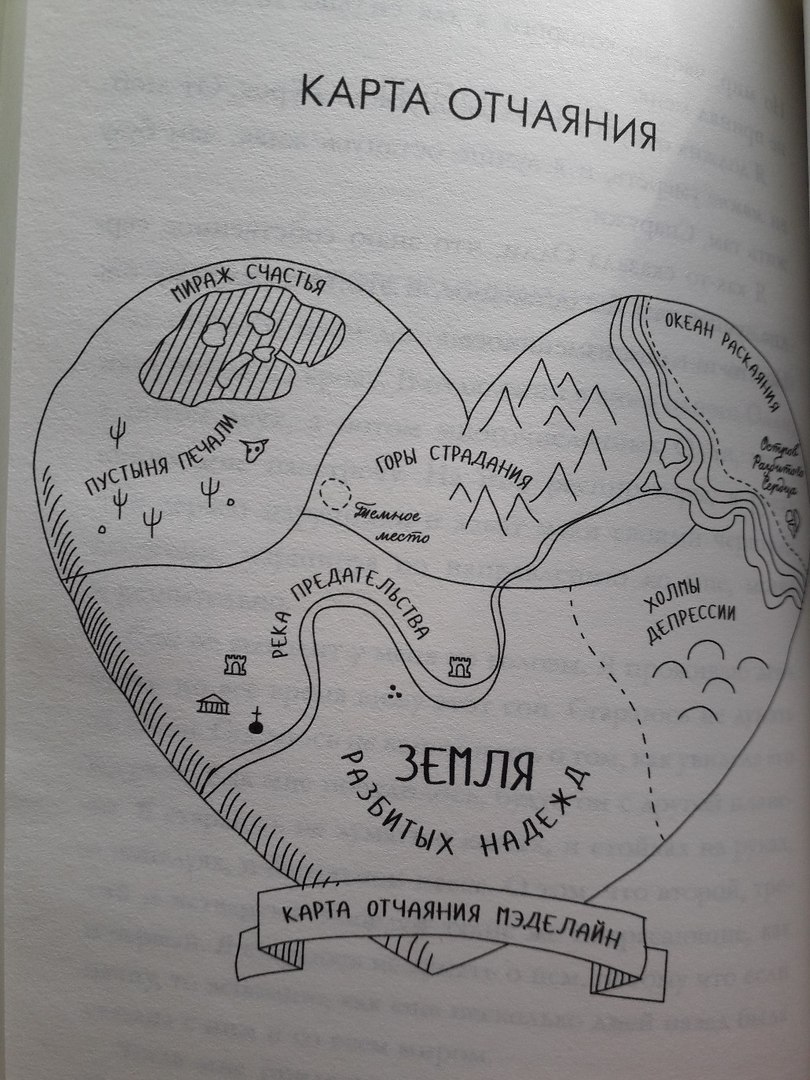 КАРТА ОТЧАЯНИЯ
МИРАЖ СЧАСТЬЯ
ОКЕАН РАСКАЯНИЯ
ПУСТЫНЯ ПЕЧАЛИ
ГОРЫ СТРАДАНИЯ
Остров
Разбитого
Сердца
Темное
место
РЕКА ПРЕДАТЕЛЬСТВА
ХОЛМЫ
ДЕПРЕССИИ
ЗЕМЛЯ
РАЗБИТЫХ НАДЕЖД
КАРТА ОТЧАЯНИЯ МЭДЕЛАЙН